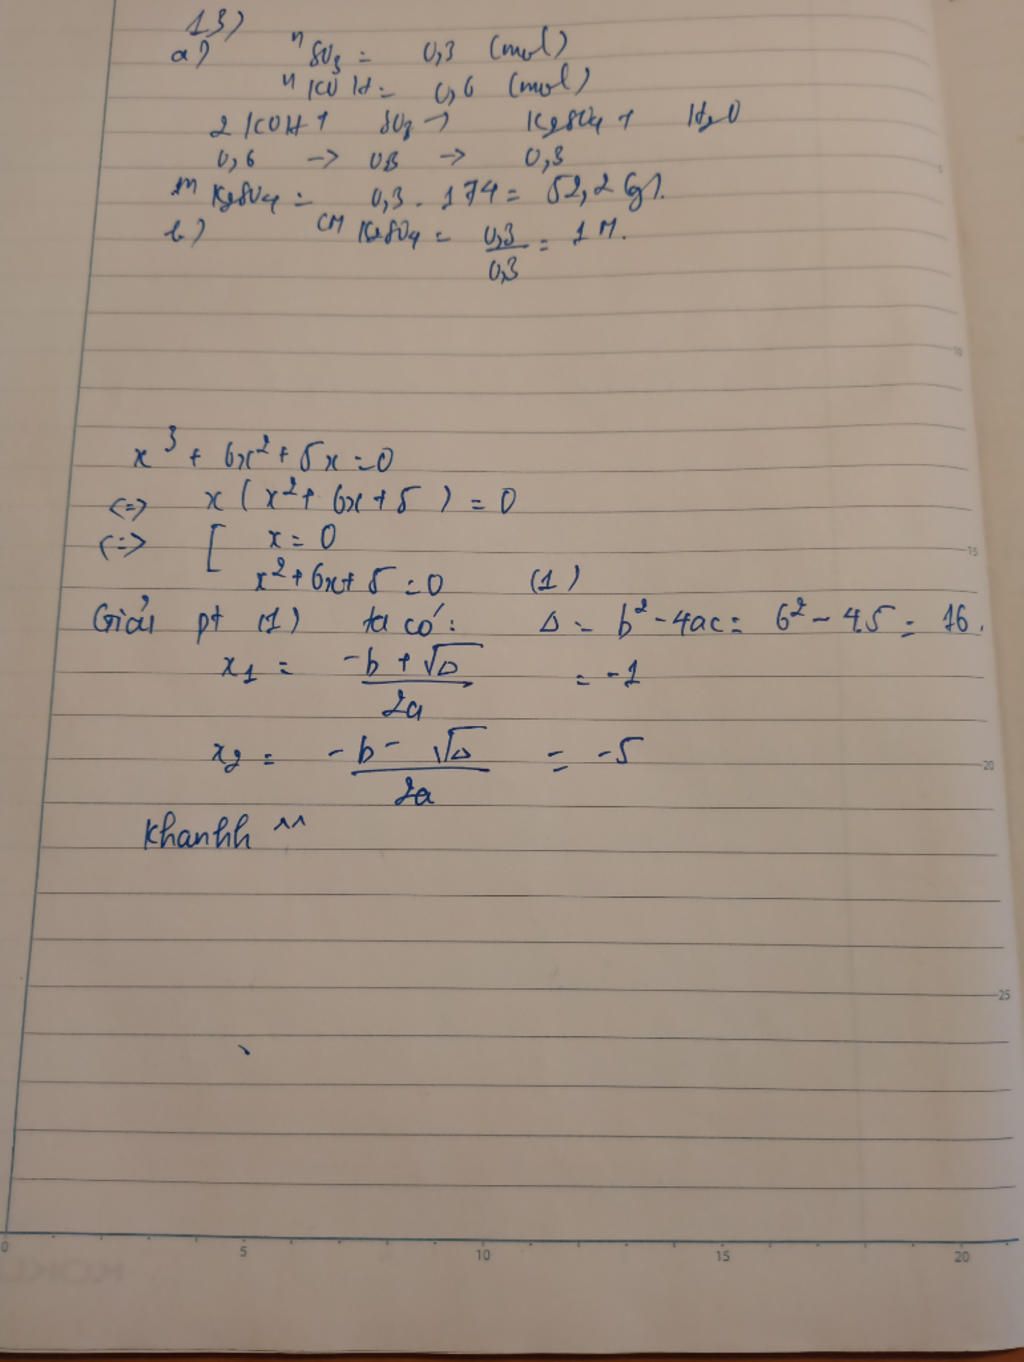 13)
a) n SO3 = 0,3 (mol)
n KOH = 0,6 (mol)
2 KOH + SO3 → K2SO4 + H2O
0,6 → 0,3 → 0,3
m K2SO4 = 0,3 . 174 = 52,2 (g).
b) CM K2SO4 = 0,3/0,3 = 1 M.
x³ + 6x² + 5x = 0
<=> x ( x² + 6x + 5 ) = 0
<=> [ x = 0
x² + 6x + 5 = 0 (1)
Giải pt (1) ta có: Δ = b² - 4ac = 6² - 4.5 = 16.
x1 = (-b + √Δ)/2a = -1
x2 = (-b - √Δ)/2a = -5
Khanhh ^^
5
10
15
20
25
0 5 10 15 20